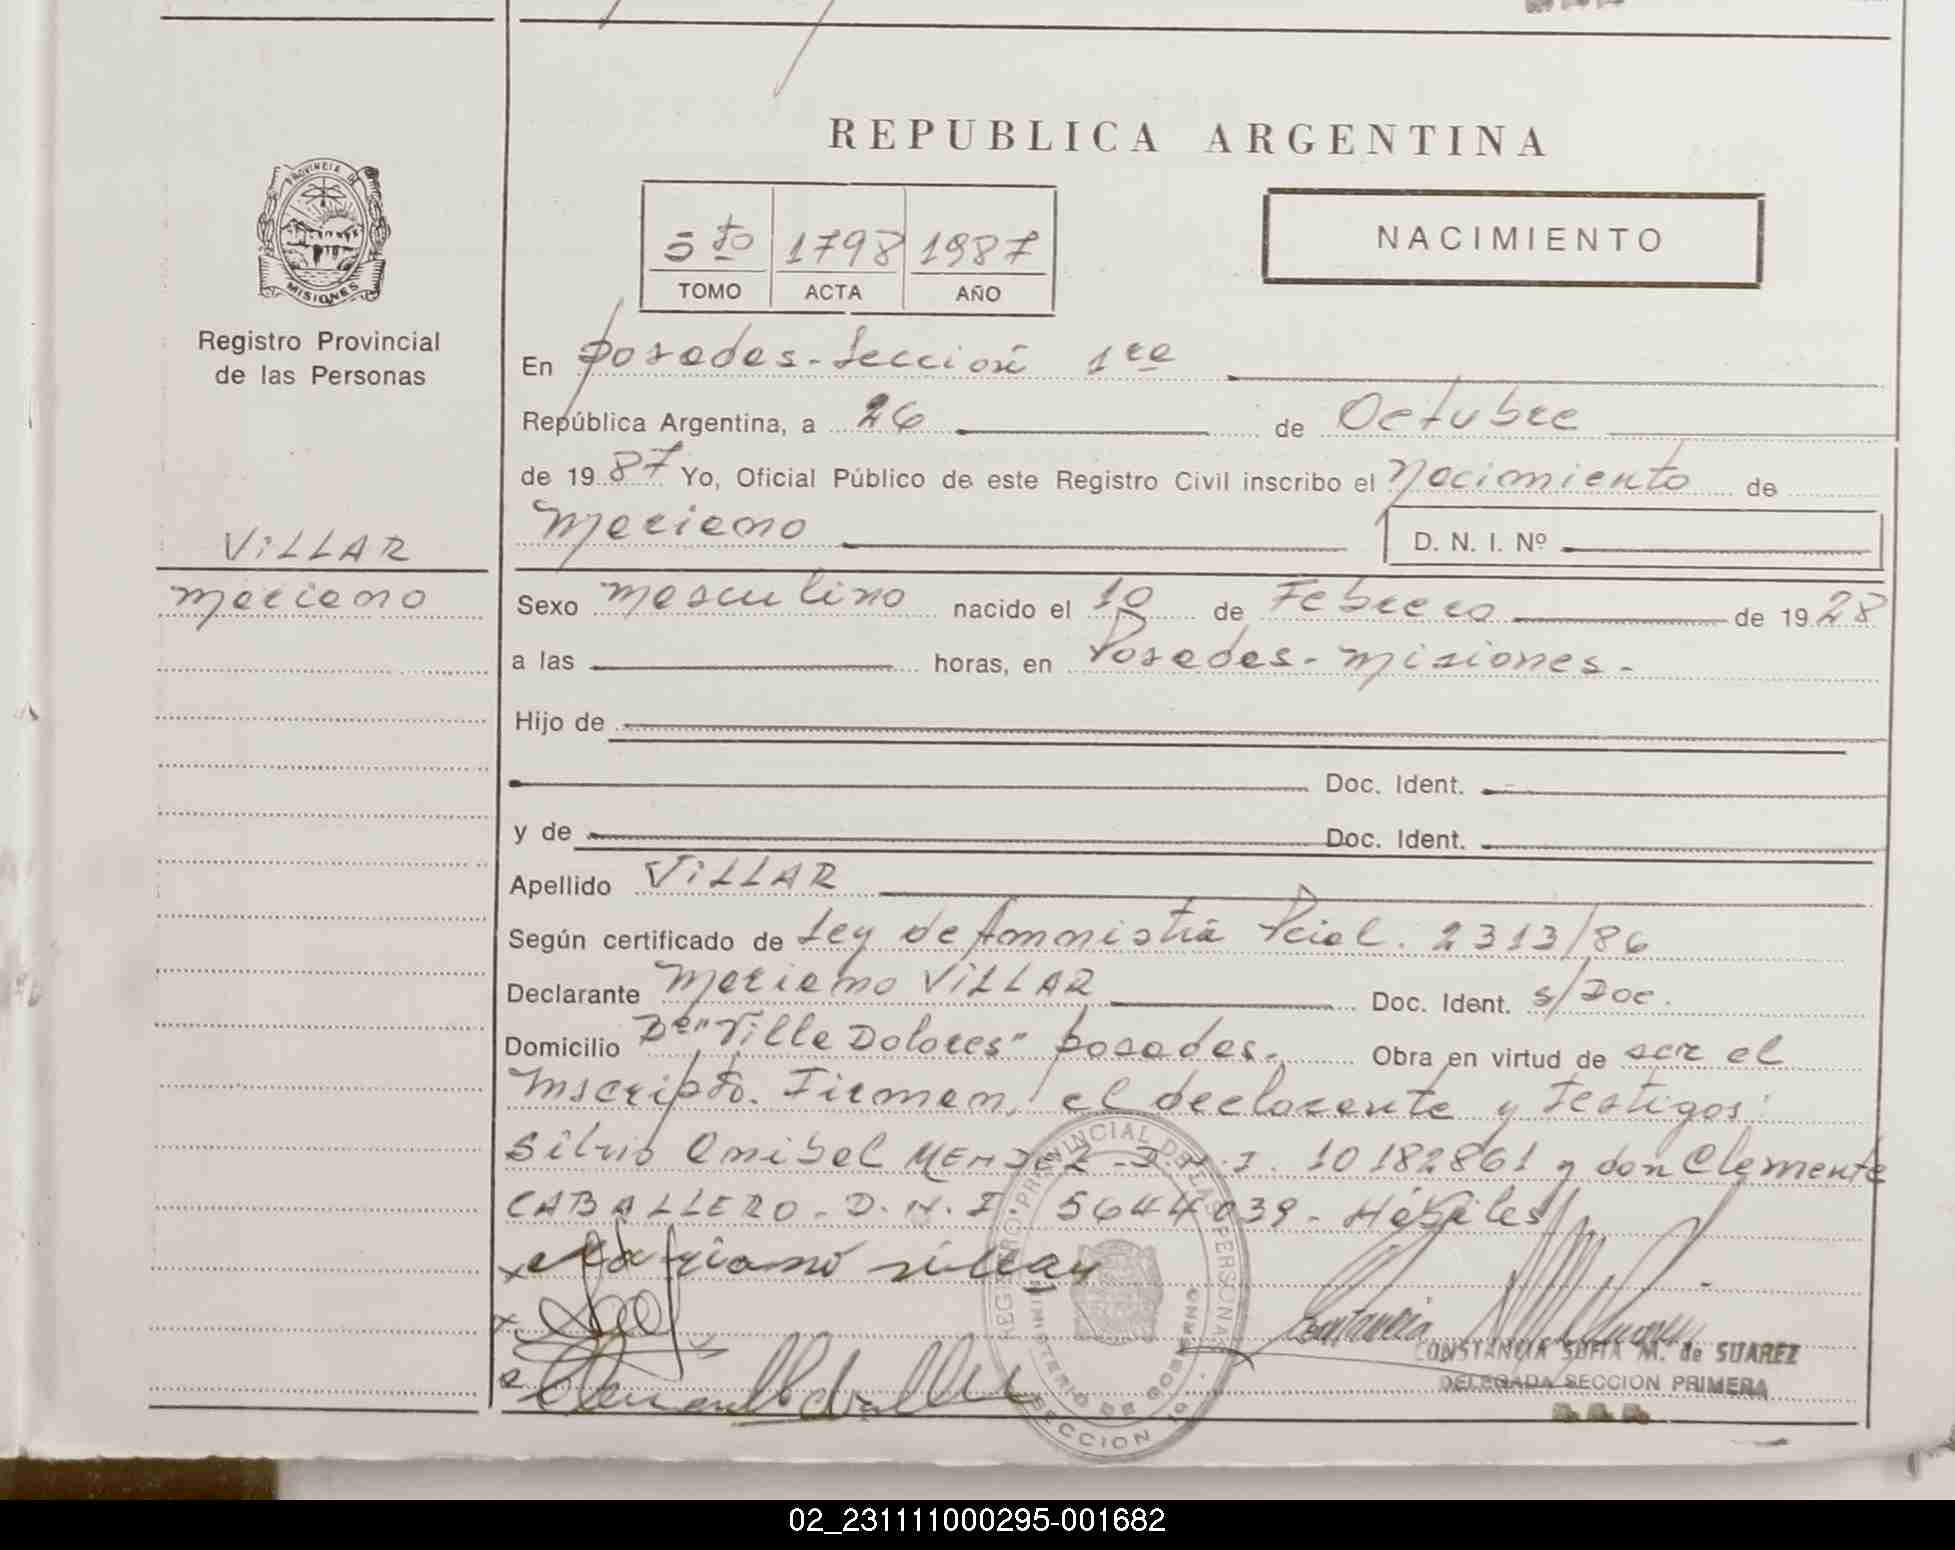 REPUBLICA ARGENTINA
PROVINCIA DE
MISIONES
Registro Provincial
de las Personas
5to 1798 1987
TOMO ACTA AÑO
NACIMIENTO
En Posadas - Sección 1ra
República Argentina, a 26 de Octubre
de 1987 Yo, Oficial Público de este Registro Civil inscribo el Nacimiento de
Mariano D. N. I. Nº
VILLAR
Mariano
Sexo Masculino nacido el 10 de Febrero de 1928
a las horas, en Posadas - Misiones -
Hijo de
Doc. Ident.
y de Doc. Ident.
Apellido VILLAR
Según certificado de Ley de Amnistía Pcial. 2313/86
Declarante Mariano VILLAR Doc. Ident. s/Doc.
Domicilio Bº "Villa Dolores" Posadas. Obra en virtud de ser el
Inscripto. Firman, el declarante y testigos:
Silvio Anibal MENDEZ - D.N.I. 10182861 y don Clemente
CABALLERO - D.N.I. 5644039 - Hábiles
x Mariano villar
REGISTRO PROVINCIAL DE LAS PERSONAS
MINISTERIO DE GOBIERNO
SECCION 1a
CONSTANCIA SOFIA M. de SUAREZ
DELEGADA SECCION PRIMERA
02_231111000295-001682